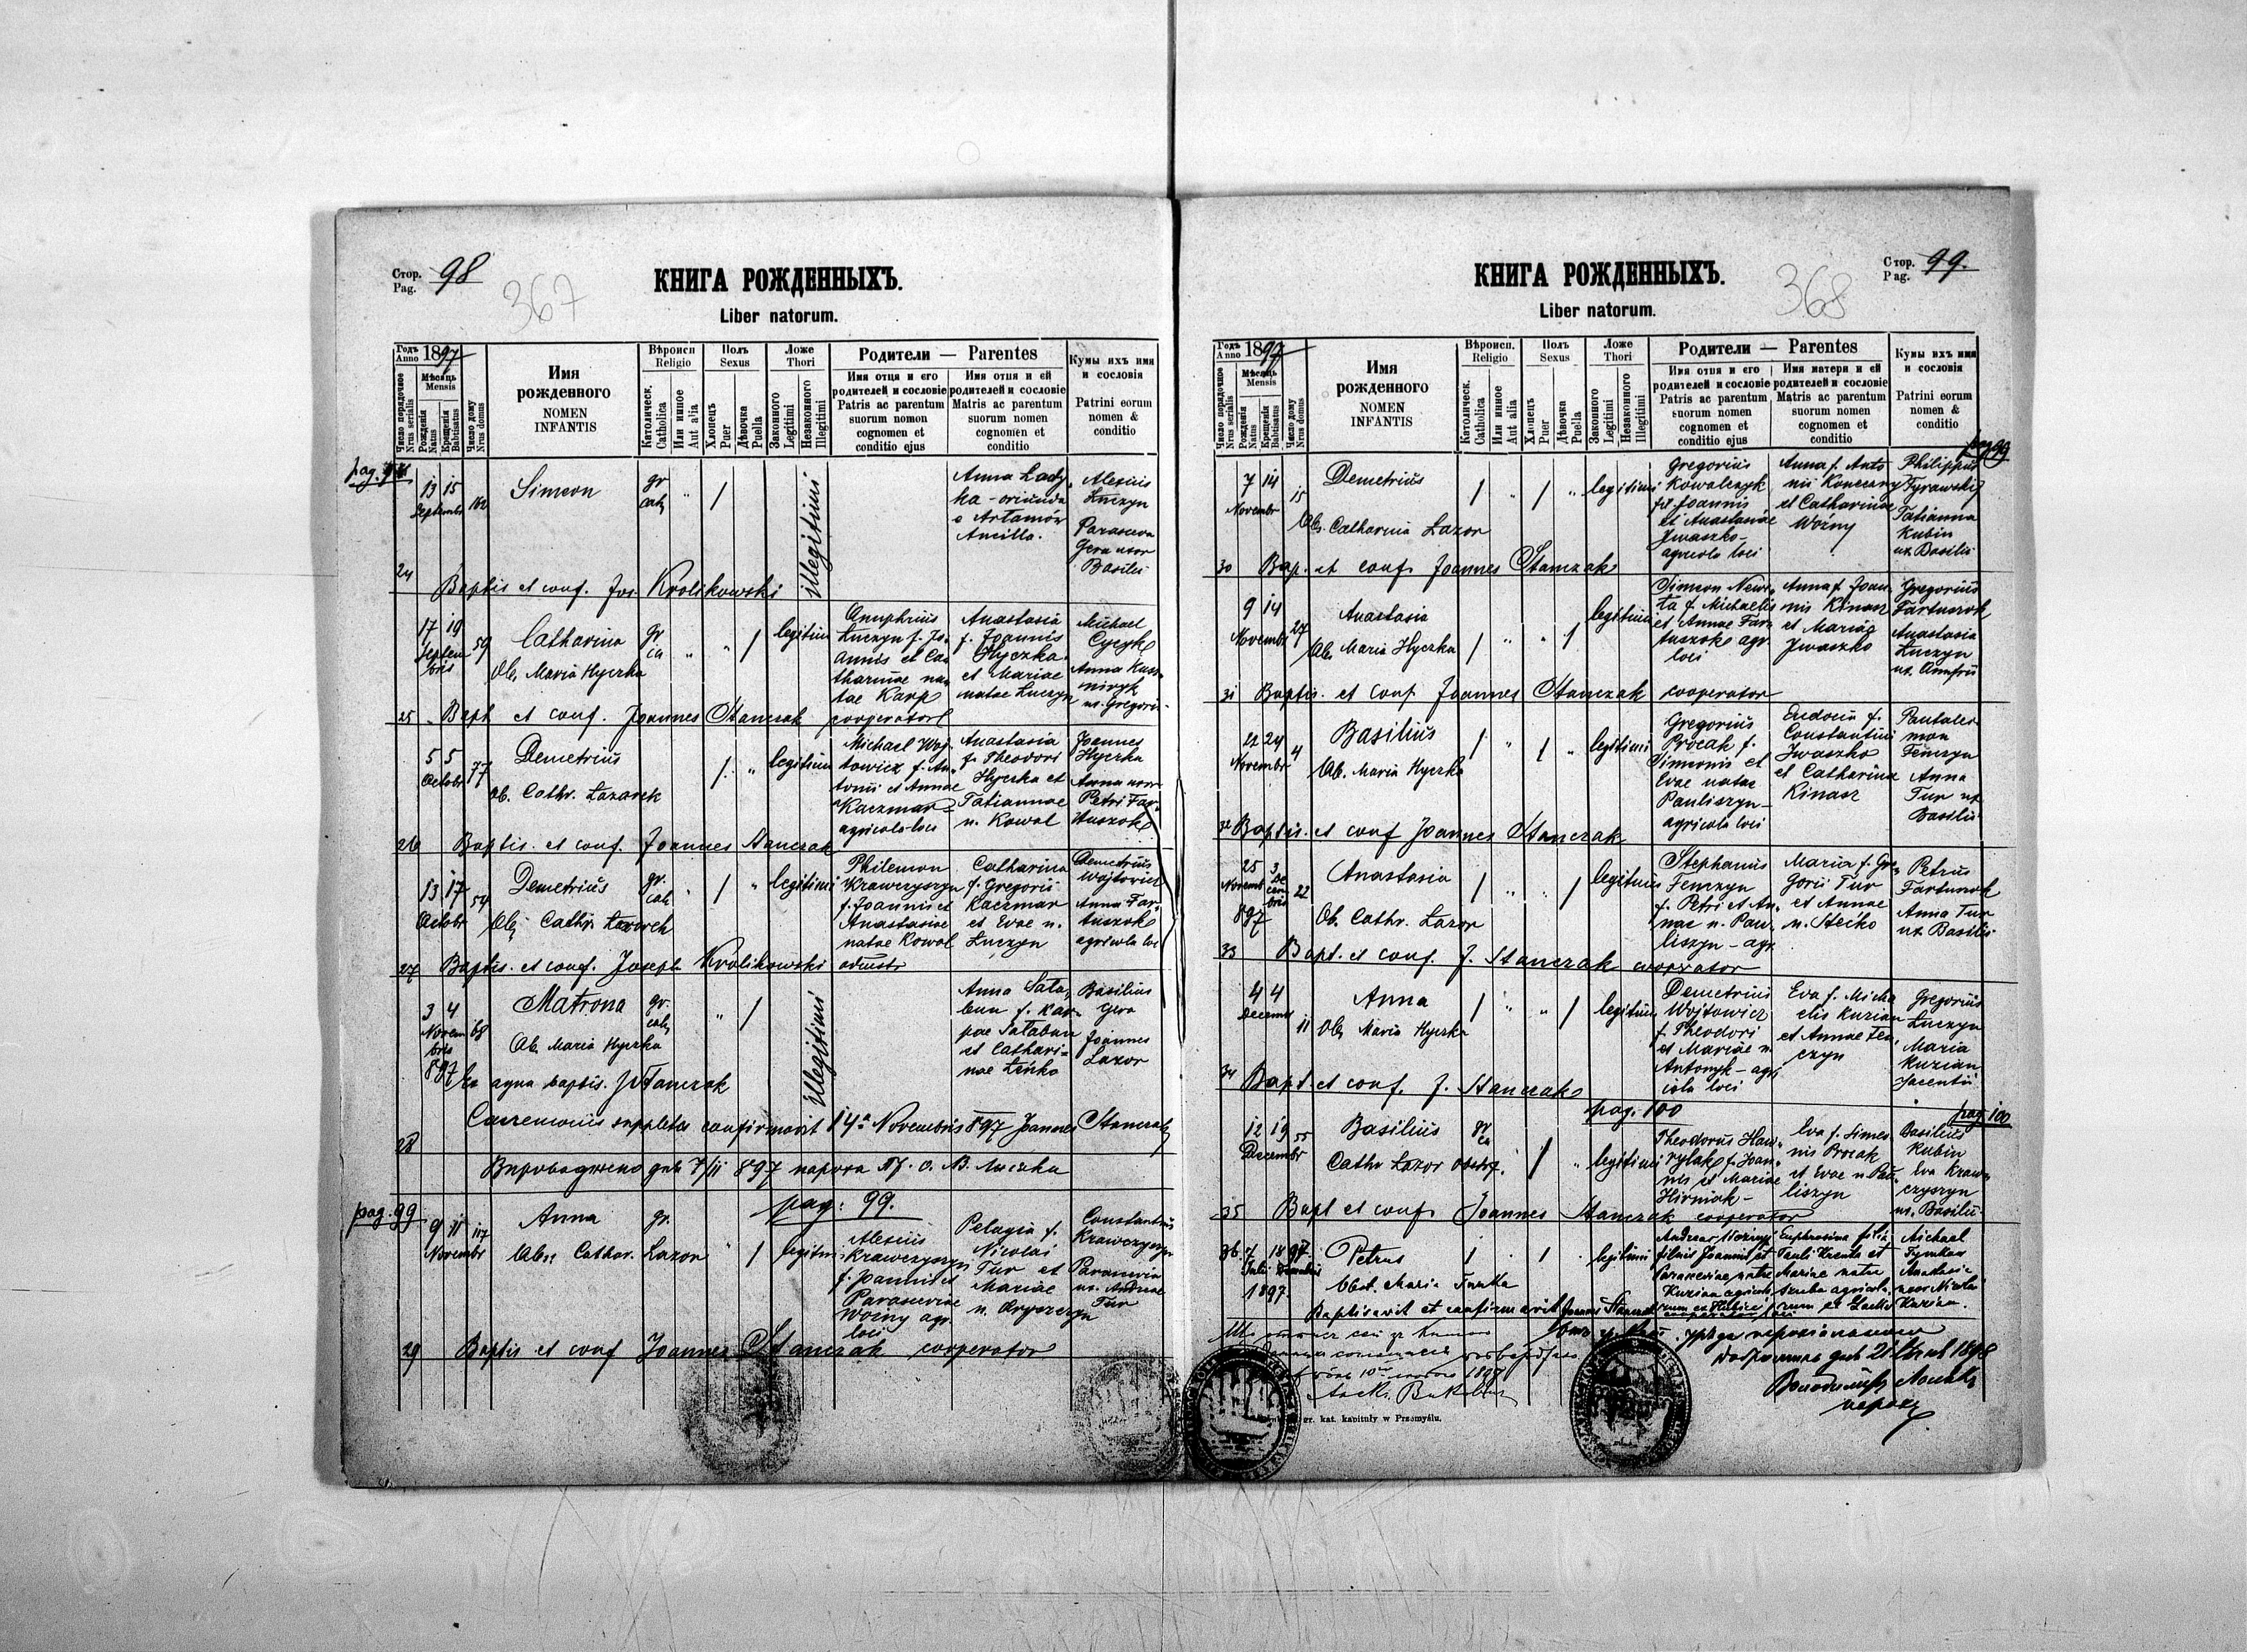 Стор. Pag. 98
367
КНИГА РОЖДЕННЫХЪ.
Liber natorum.
Годъ Anno 1897
Мѣсяць Mensis
Число порядочное Nrus serialis
Рожденія Natus
Крещенія Babtisatus
Число дому Nrus domus
Имя рожденного
NOMEN INFANTIS
Вѣроисп Religio
Католическ. Catholica
Или инное Aut alia
Полъ Sexus
Хлопець Puer
Дѣвочка Puella
Ложе Thori
Законного Legitimi
Незаконного Illegitimi
Родители — Parentes
Имя отца и его родителей и сословіе
Patris ac parentum suorum nomen cognomen et conditio ejus
Имя отца и ей родителей и сословіе
Matris ac parentum suorum nomen cognomen et conditio
Кумы ихъ имя и сословія
Patrini eorum nomen & conditio
13 15 Septembr
Simeon
gr cath
illegitimi
Anna Lady
ka - oriunda
e Artamów
Ancilla.
Alexius
Łuczyn
Parasceva
Gera uxor
Basilii
24 Baptis et conf. Jos. Krolikowski
17 19 Septembris 59
Catharina
Ob. Maria Hyczka
legitimi
Onuphrius
Łuczyn f. Jo-
annis et Ca
tharinae na
tae Karp
Anastasia
f. Joannis
Hyczka
et Mariae
natae Łuczyn
Michael
Cycyk
Anna
ux. Gregorii
25 Bapt et conf. Joannes Stanczak cooperator
5 5 Octobr 77
Demetrius
Ob. Cathr. Lazarek
legitimi
Michael Woj
towicz f. An
tonii et Annae
Kaczmar
agricola loci
Anastasia
f. Theodori
Hyczka et
Tatiannae
n. Kowal
Joannes
Hyczka
Anna uxor
Petri Far
tuszok
26 Baptis. et conf. Joannes Stanczak
13 17 Octobr 54
Demetrius
gr. cath
legitimi
Philemon
Krawczyszyn
f. Joannis et
Anastasiae
natae Kowal
Catharina
f. Gregorii
Kaczmar
et Evae n.
Łuczyn
Demetrius
Wojtowicz
Anna Far-
tuszok
agricola loc
27 Baptis. et conf. Joseph Krolikowski
3 4 Novembris 68
897
Matrona
gr. cath
Ob. Maria Hyczka
illegitimi
Anna Sata
ban f. Kar
pae Sataban
et Cathari-
nae Leńko
Basilius
Gera
Joannes
Lazor
Ex aqua baptis. J Stanczak
Caeremonias suppletas confirmavit 14a Novembris 897 Joannes Stanczak
28
pag. 99
pag: 99.
9 11 Novembr 117
Anna
gr.
Obs: Cathar. Lazor
legitimi
Alexius
Krawczyszyn
f. Joannis et
Parasceviae
Woźny agr.
loci
Pelagia f.
Nicolai
Tur et
Mariae
Constantinus
Krawczyszyn
Parascevia
ux. Andreae
Tur
29 Baptis et conf Joannes Stanczak cooperator
Стор. Pag. 99.
368
КНИГА РОЖДЕННЫХЪ.
Liber natorum.
Годъ Anno 1897
Мѣсяць Mensis
Число порядочное Nrus serialis
Рожденія Natus
Крещенія Babtisatus
Число дому Nrus domus
Имя рожденного
NOMEN INFANTIS
Вѣроисп. Religio
Католическ. Catholica
Или инное Aut alia
Полъ Sexus
Хлопець Puer
Дѣвочка Puella
Ложе Thori
Законного Legitimi
Незаконного Illegitimi
Родители — Parentes
Имя отца и его родителей и сословіе
Patris ac parentum suorum nomen cognomen et conditio ejus
Имя матери и ей родителей и сословіе
Matris ac parentum suorum nomen cognomen et conditio
Кумы ихъ имя и сословія
Patrini eorum nomen & conditio
pag 99
7 14 Novembr 15
Demetrius
Obs. Catharina Lazor
legitimi
Gregorius
Kowalczyk
fil Joannis
et Anastasiae
Jwaszko-
agricola loci
Anna f. Anto
nii Koneczny
et Catharinae
Woźny
Philippus
Tyrawskij
Tatianna
Kubin
ux Basilii
30 Bap. et conf. Joannes Stanczak
9 14 Novembr 27
Anastasia
Ob. Maria Hyczka
legitimi
f. Michaelis
et Annae Far
tuszok agr.
loci
Anna f. Joan
nis Kinasz
et Mariae
Jwaszko
Gregorius
Fartuszok
Anastasia
Łuczyn
ux. Onufrii
31 Baptis. et conf Joannes Stanczak cooperator
22 24 Novembr 4
Basilius
Ob. Maria Hyczka
legitimi
Gregorius
Procak f.
Simeonis et
Evae natae
Pauliszyn-
agricola loci
Eudocia f.
Constantini
Jwaszko
et Catharina
Kinasz
Pantalei
mon
Feńczyn
Anna
Tur ux
Basilii
32 Baptis. et conf Joannes Stanczak
25 3 Decembris 22
897
Anastasia
Ob. Cathr. Lazor
legitimi
Stephanus
Fenczyn
f. Petri et An
nae n. Pau
liszyn - agr
Maria f. Gre
gorii Tur
et Annae
n. Stećko
Petrus
Fartuszok
Anna Tur
ux Basilii
33 Bapt. et conf. J. Stanczak cooperator
4 4 Decembr 11
Anna
Ob. Maria Hyczka
legitimi
Demetrius
Wojtowicz
f. Theodori
et Mariae n.
Antonyk - agri
cola loci
Eva f. Micha
elis Kuzian
et Annae Fen
czyn
Gregorius
Łuczyn
Maria
Kuzian
Jacentii
34 Bapt. et conf. J. Stanczak
pag. 100
pag 100
12 19 Decembr 55
Basilius
Cathr Lazor obstetr.
legitimi
Theodorus Haw
rylak f. Joan
nis et Mariae
Hirniak -
Eva f. Simeo
nis Procak
et Evae n Pau
liszyn
Basilius
Kubin
Eva Kraw-
czyszyn
ux. Basilii
35 Bapt et conf. Joannes Stanczak cooperator
36.
1897.
Petrus
Obst. Maria
legitimi
filius Joannis et
Euphrosina filia
Michael
Tymkow
Anastasia
uxor Nicolai
Kuzian.
Baptisavit et confirmavit Joannes Stanczak cooperator loci
gr. kat. kapituły w Przemyślu.